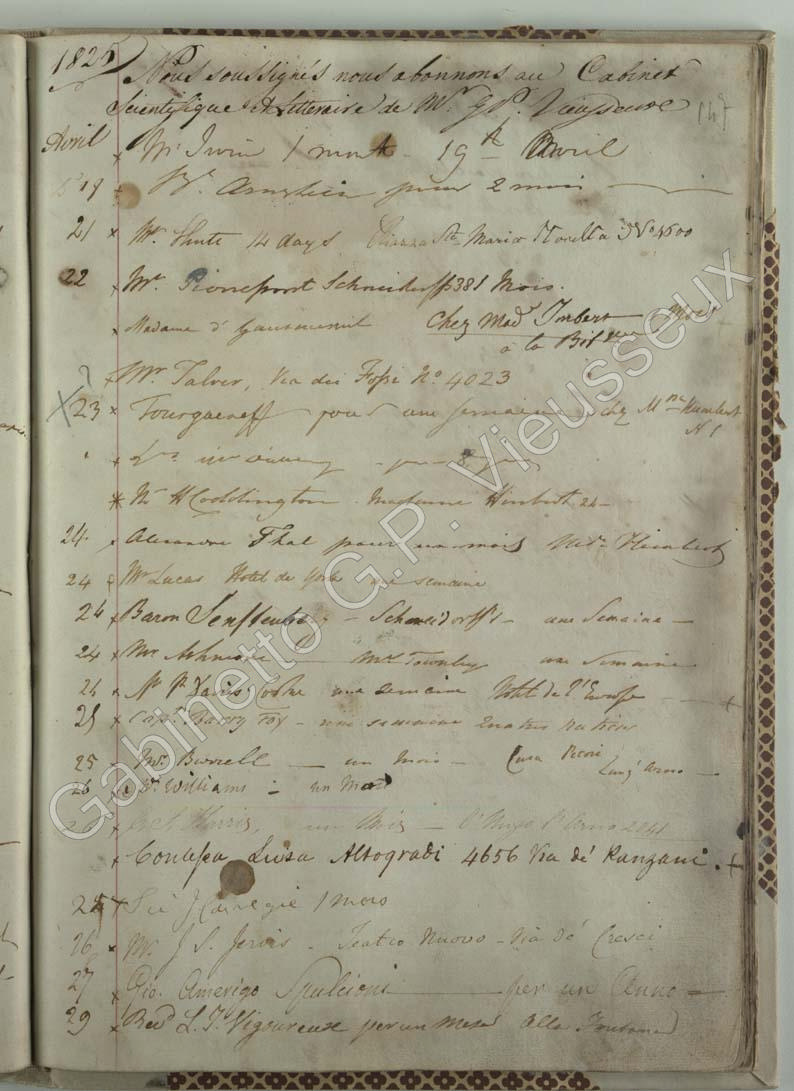 1825 Nous soussignés nous abonnons au Cabinet
Scientifique & Litteraire de Mr. G. P. Vieusseux 147
Avril Mr. Irvin 1 month 19th Avril
19 pour 2 mois
21 Mr. Shute 14 days. Piazza Sta. Maria Novella No 4600
22 Mr. Pierrepont Schneiderff 381 Mois.
Madame d' Chez Made. Imbert
à la
? Mr. Talver, Via dei Fossi No. 4023
23 Tourgueneff pour une semaine chez Mme Humbert
Mr H Coddington Madame Himbert 24
24. Alexandre Thal pour un mois Mde. Heimbert
24 Mr Lucas Hotel de York une semaine
24 Baron Senftenberg - Schneidorff's - une Semaine -
24 Mr Ashmore Mrs Townley une Semaine
26 une semaine Hotel de l'Europe
25 Capt. Harry Fox - une semaine Quatre Nations
25 Mr. Burrell - un mois - Casa Pecori
Lung' Arno
26 Williams - un Mois
Harris, un Mois - Lungo l'Arno 2041
Contessa Luisa Altogradi 4656 Via de' Panzani.
25 Carnegie 1 mois
26 Mr. J S. Jervis - Teatro Nuovo - Via de' Cresci
27 Gio. Amerigo Spulcioni per un Anno
29 Revd. L. J. Vigoureux per un mese Alla Fontana
Gabinetto G.P. Vieusseux